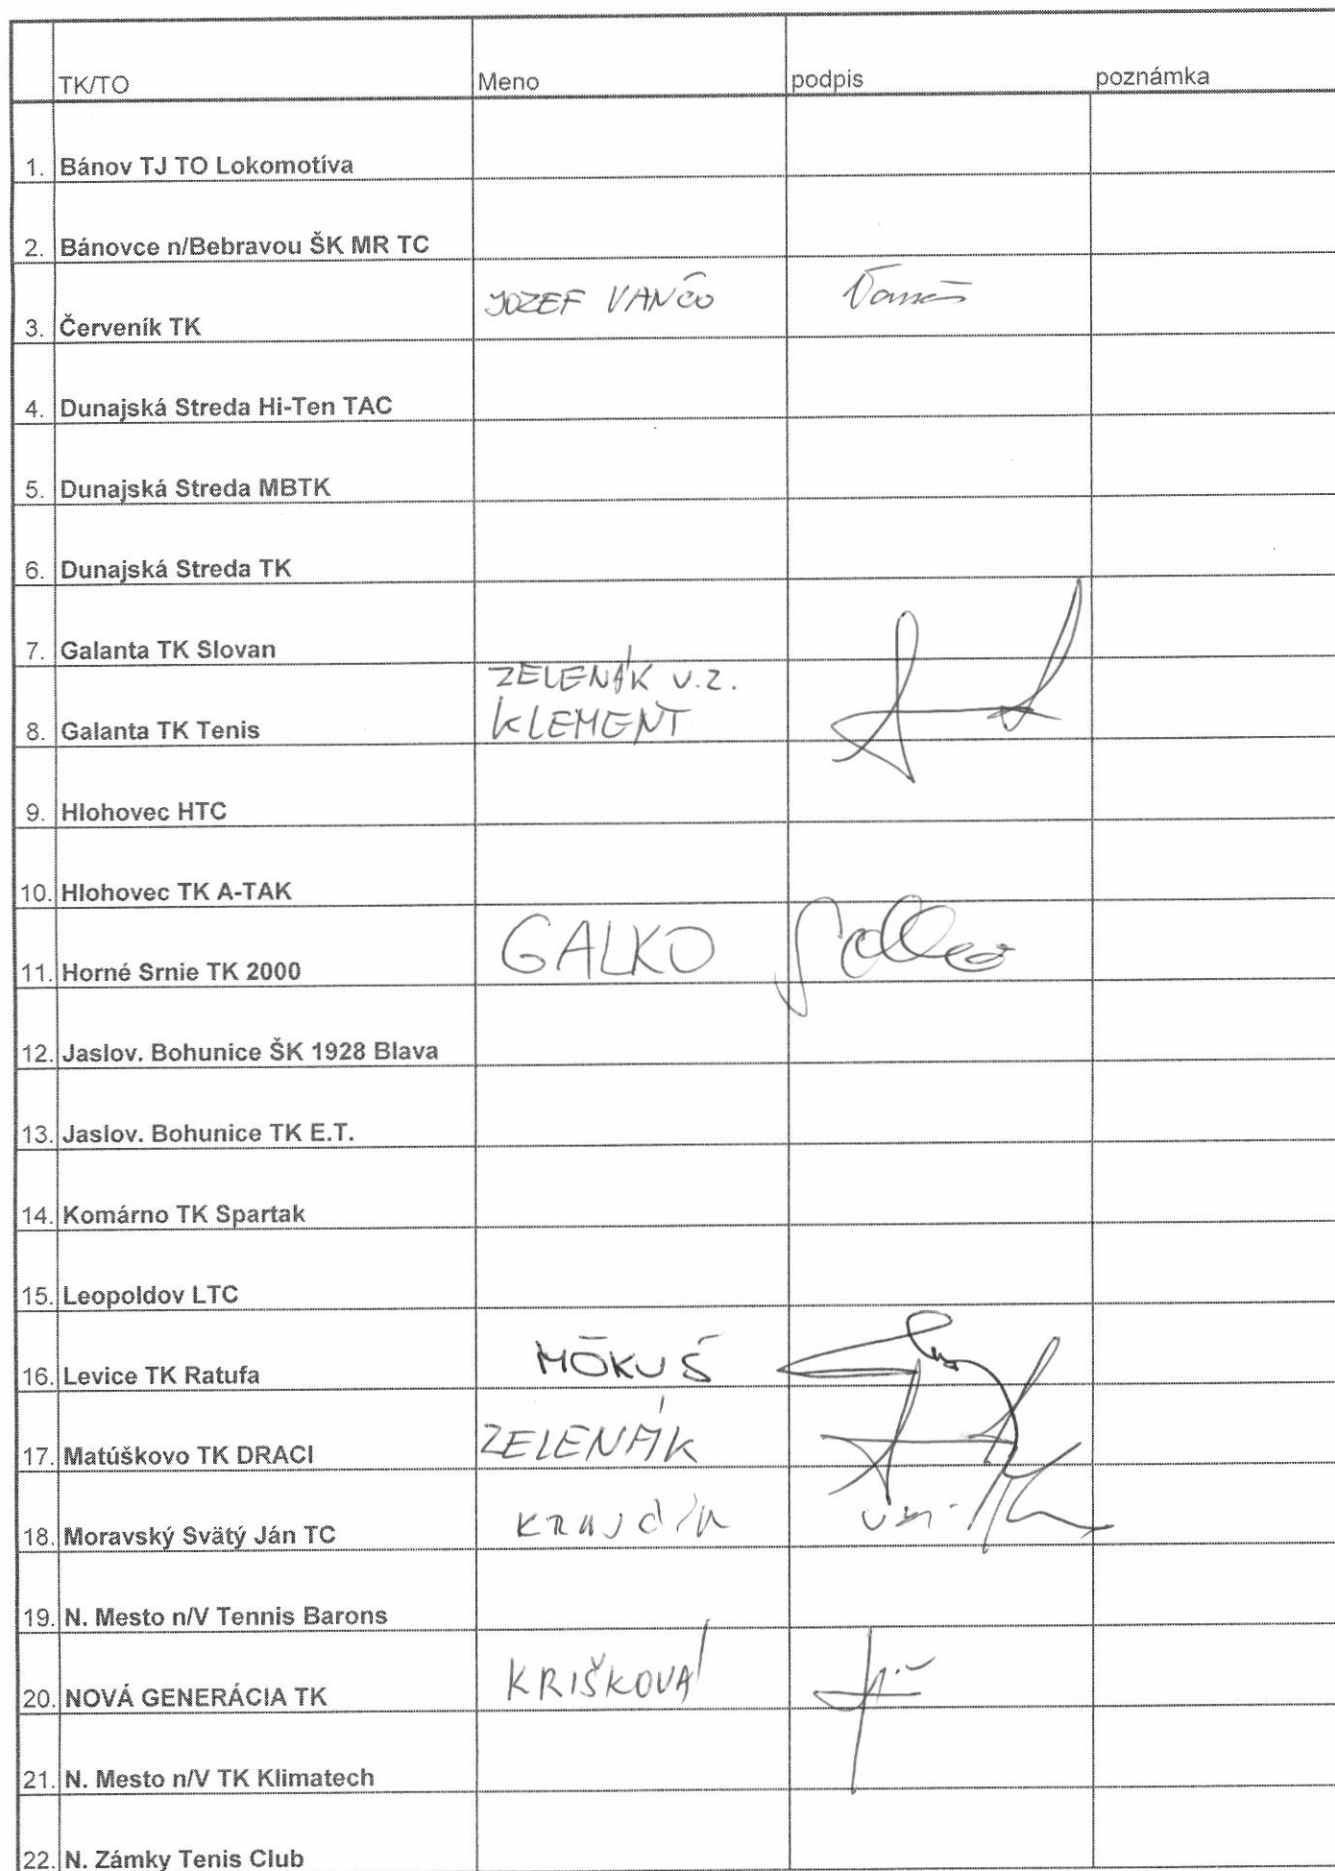 TK/TO Meno podpis poznámka
1. Bánov TJ TO Lokomotíva
2. Bánovce n/Bebravou ŠK MR TC
3. Červeník TK JOZEF VANČO
4. Dunajská Streda Hi-Ten TAC
5. Dunajská Streda MBTK
6. Dunajská Streda TK
7. Galanta TK Slovan
ZELENÁK v.z.
8. Galanta TK Tenis KLEMENT
9. Hlohovec HTC
10. Hlohovec TK A-TAK
11. Horné Srnie TK 2000 GALKO
12. Jaslov. Bohunice ŠK 1928 Blava
13. Jaslov. Bohunice TK E.T.
14. Komárno TK Spartak
15. Leopoldov LTC
16. Levice TK Ratufa
17. Matúškovo TK DRACI ZELENÁK
18. Moravský Svätý Ján TC
19. N. Mesto n/V Tennis Barons
20. NOVÁ GENERÁCIA TK KRIŠKOVÁ
21. N. Mesto n/V TK Klimatech
22. N. Zámky Tenis Club